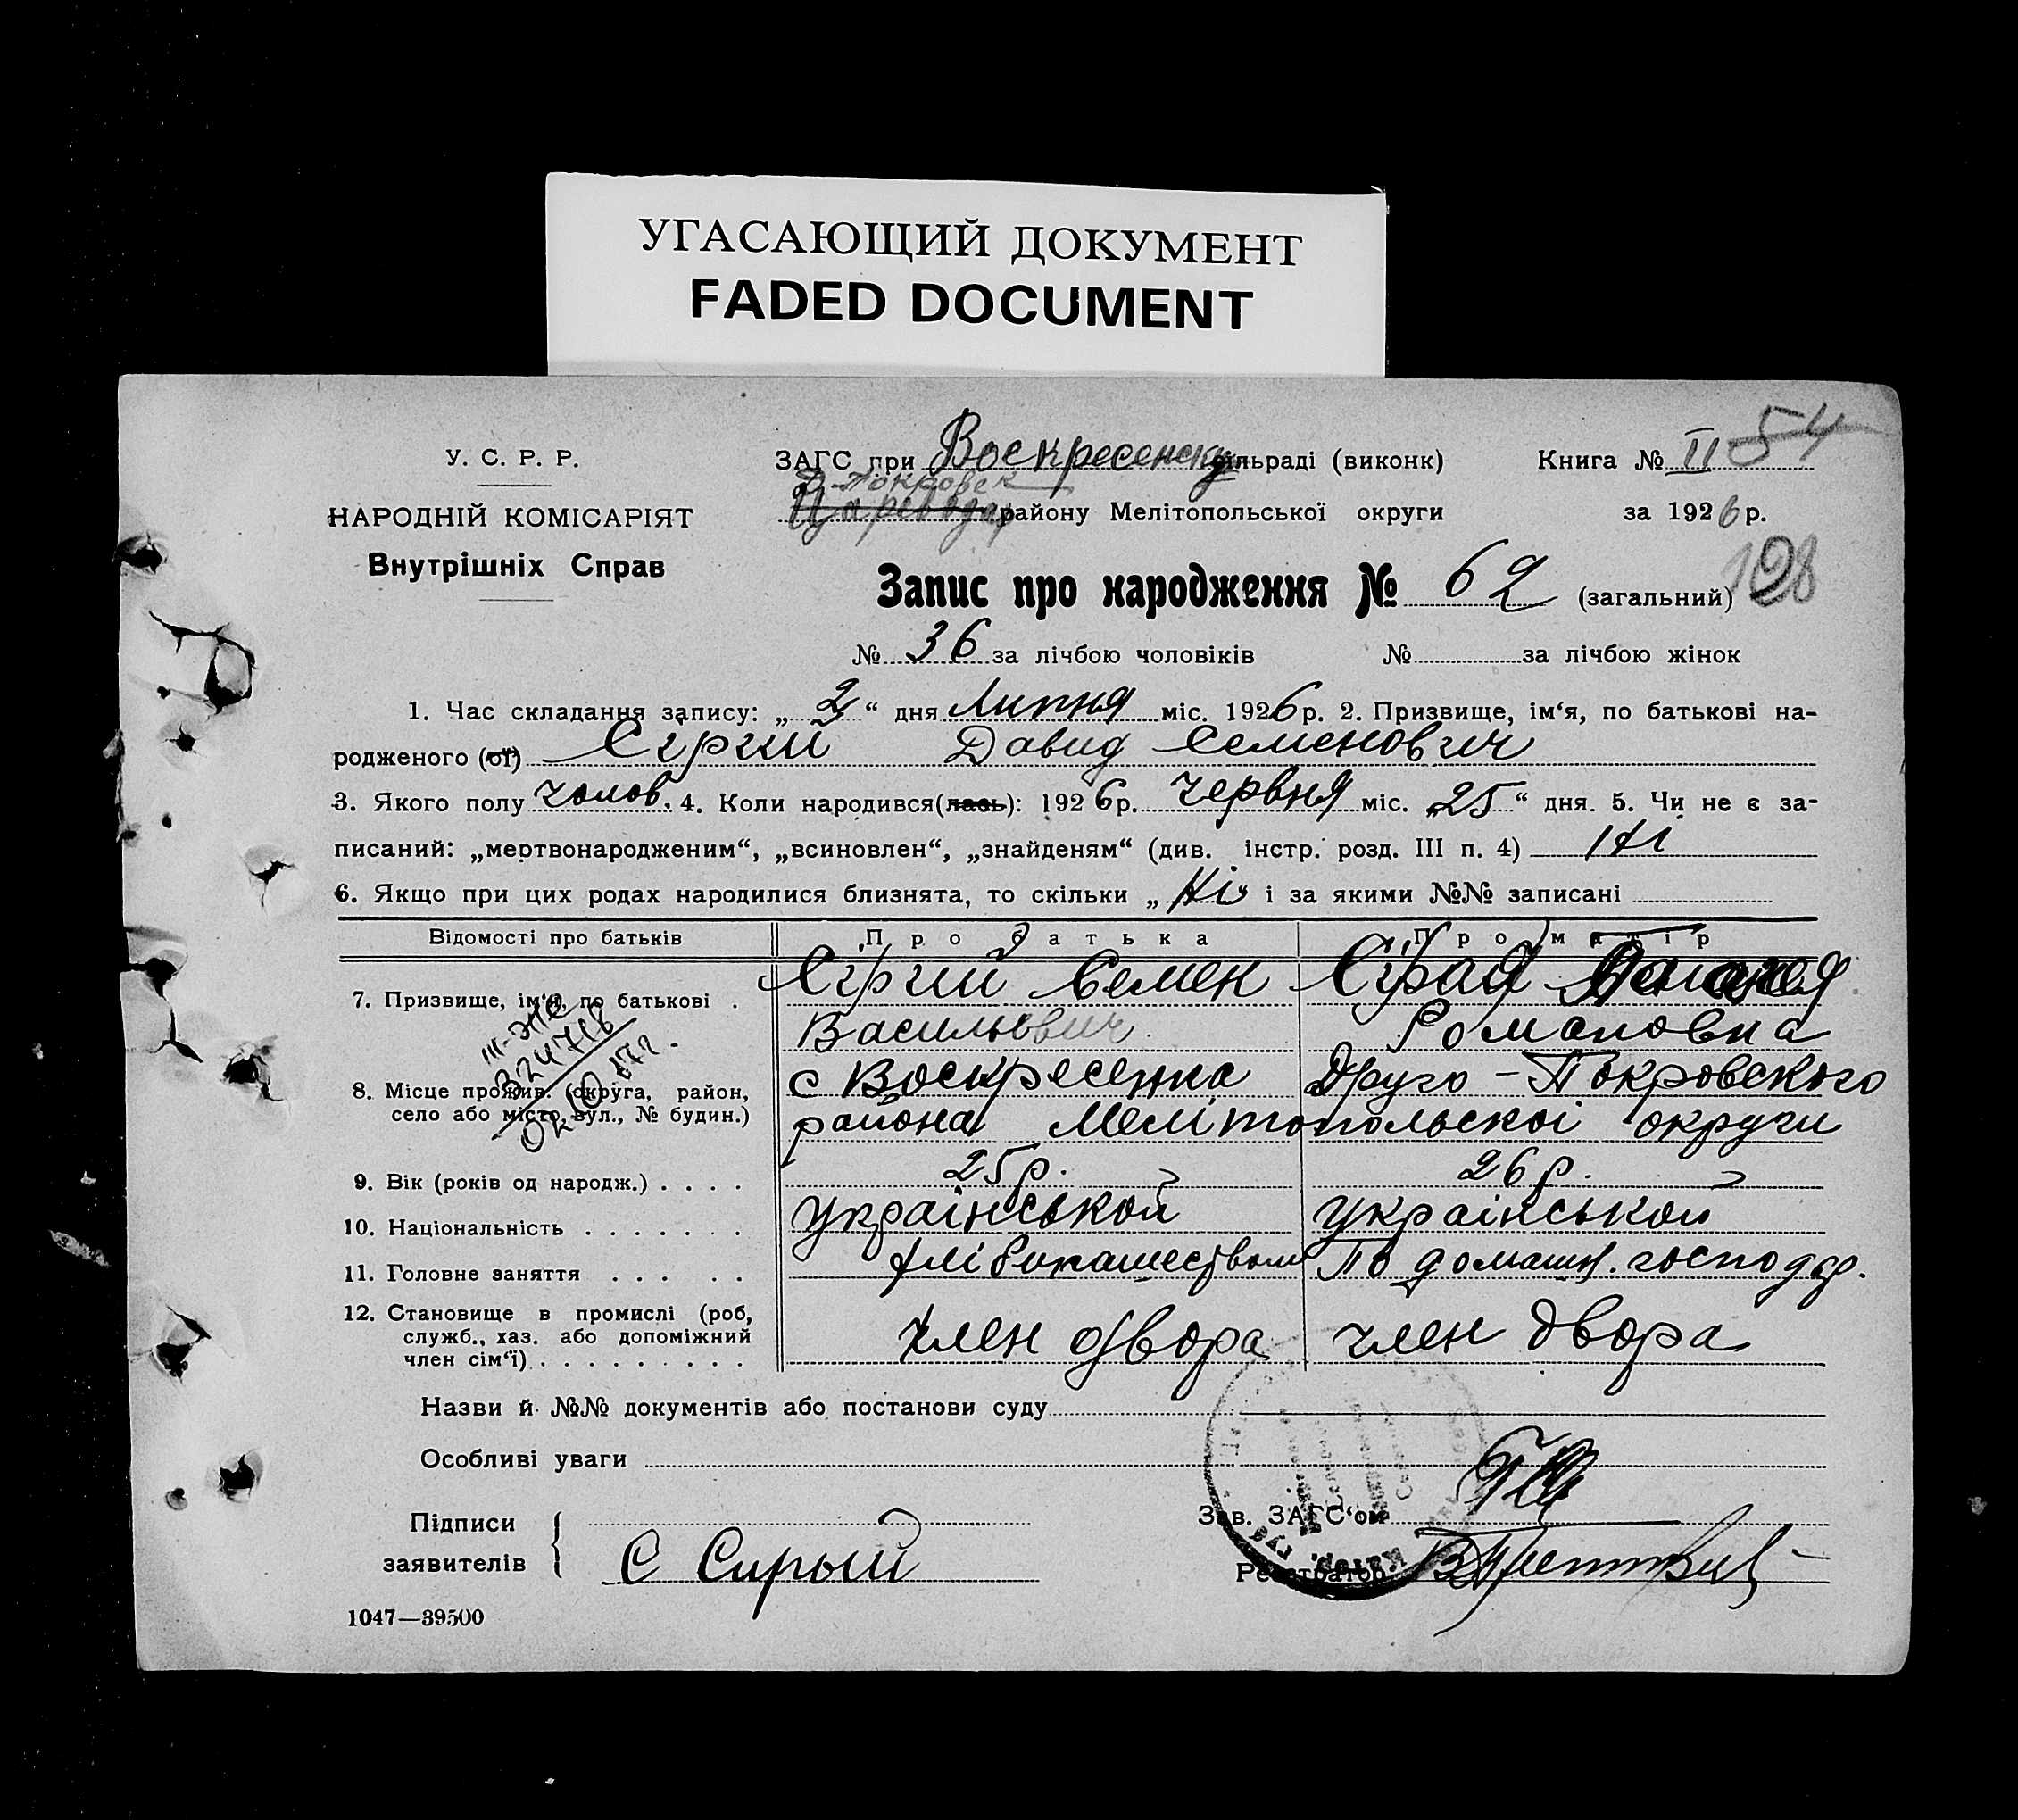 УГАСАЮЩИЙ ДОКУМЕНТ
FADED DOCUMENT
У. С. Р. Р.
НАРОДНІЙ КОМІСАРІЯТ
Внутрішніх Справ
ЗАГС при Воскресенску сільраді (виконк)
Книга № II 54
Покровск
Цареводар району Мелітопольської округи
за 1926 р.
Запис про народження № 62 (загальний) 128
№ 36 за лічбою чоловіків № за лічбою жінок
1. Час складання запису: „ 2 “ дня Липня міс. 1926 р. 2. Призвище, ім‘я, по батькові на-
родженого (ої) Сірий Давид Семенович
3. Якого полу чолов. 4. Коли народився(лась): 1926 р. червня міс. „25“ дня. 5. Чи не є за-
писаний: „мертвонародженим“, „всиновлен“, „знайденям“ (див. інстр. розд. III п. 4) Ні
6. Якщо при цих родах народилися близнята, то скільки „ Ні “ і за якими №№ записані
Відомості про батьків Про батька Про матір
7. Призвище, ім‘я, по батькові .
Сірий Семен
Васильович
Сірая
Романовна
III-ЖС
324718
8. Місце прожив. (округа, район,
село або місто, вул., № будин.)
с Воскресенка Друго-Покровского
района Мелітопольскоі округи
9. Вік (років од народж.) . . . . 25 р. 26 р.
10. Національність . . . . . . . українськой українськой
11. Головне заняття . . . . . По домашн. господар.
12. Становище в промислі (роб,
служб., хаз. або допоміжний
член сім‘ї) . . . . . . . . . .
член двора член двора
Назви й №№ документів або постанови суду
Особливі уваги
Підписи
заявителів
С Сирый
Зав. ЗАГС‘ом
Реєстратор
1047—39500